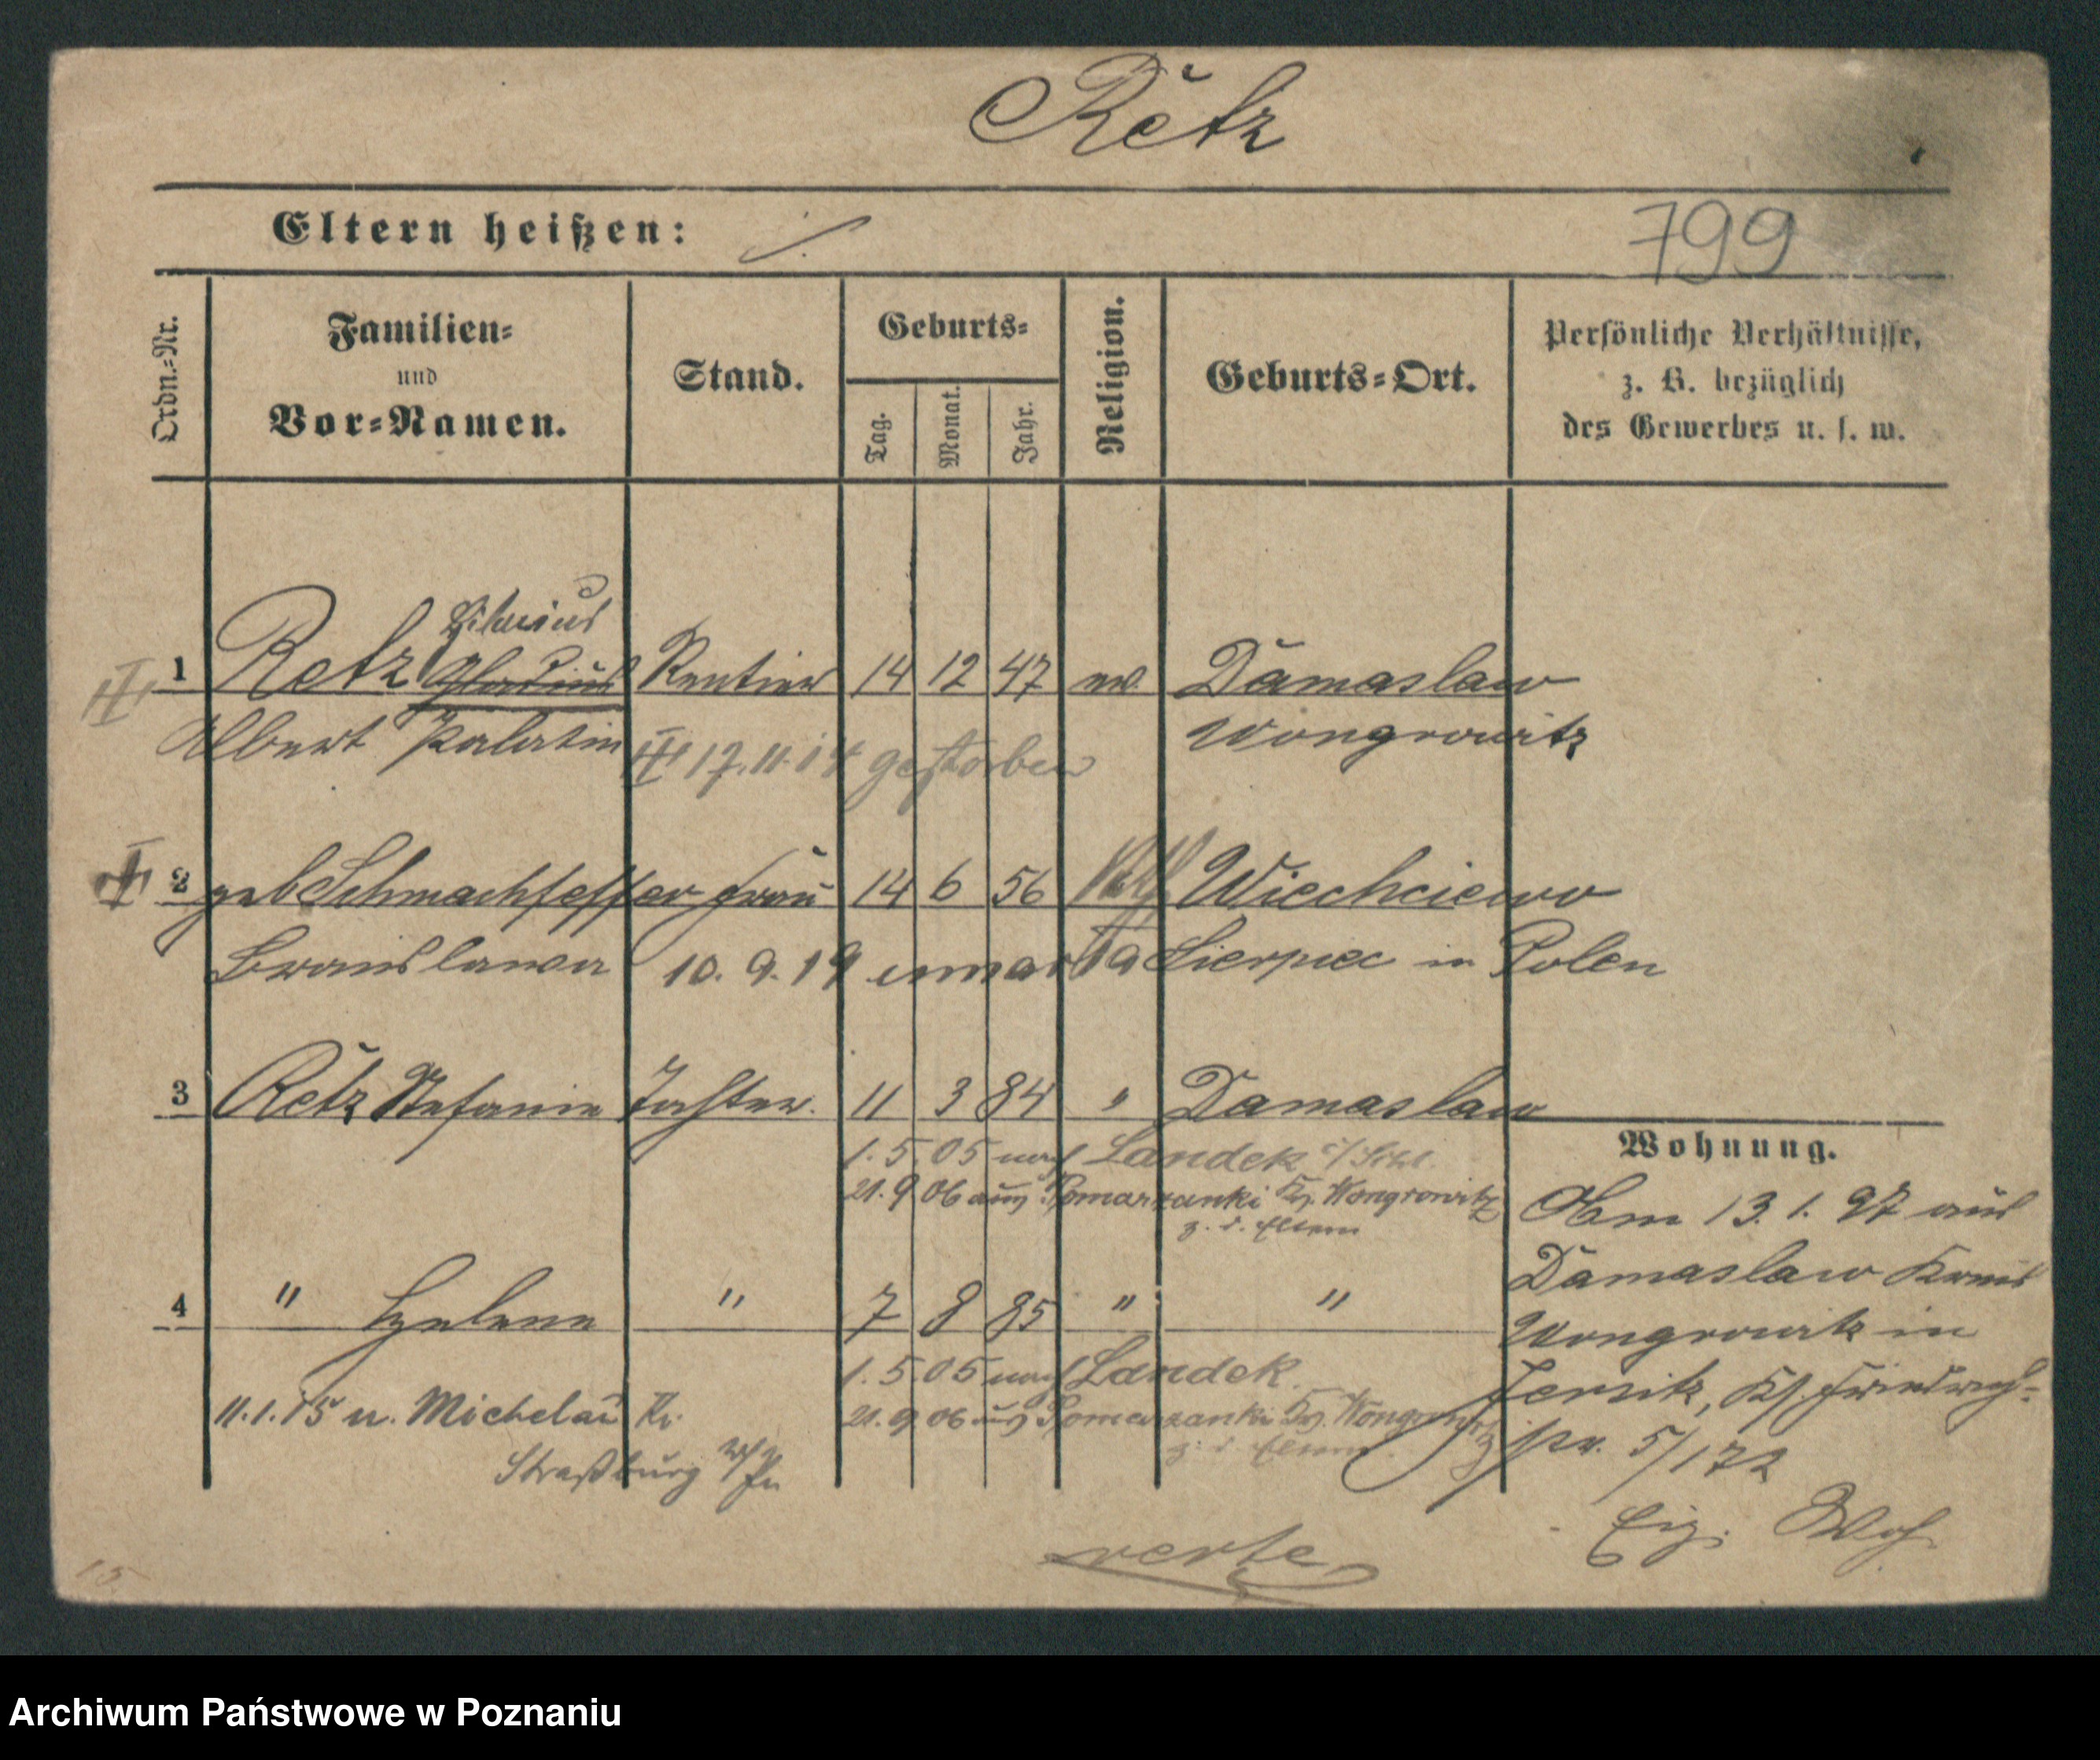 Retz
Eltern heißen: ./.
799
Ordn.-Nr.
Familien-
und
Vor-Namen.
Stand.
Geburts-
Tag.
Monat.
Jahr.
Religion.
Geburts-Ort.
Persönliche Verhältnisse,
z. B. bezüglich
des Gewerbes u. s. w.
1 Retz Rentier 14 12 47 Damaslaw
Albert Wongrowitz
17.11.14 gestorben
2 geb Schmachfeffer Frau 14 6 56 Wiechciewo
Bronislawa Sierpiec in Polen
10. 9. 19
3 Retz Stefanie Tochter. 11 3 84 " Damaslaw
1. 5. 05 nach Landek i/Schl.
21. 9 06 aus Pomarzanki Kr. Wongrowitz
z. d. Eltern
4 " Helene " 7 8 85 " "
1. 5. 05 nach Landek
21. 9 06 aus Pomarzanki Kr. Wongrowitz
z. d. Eltern
11. 1. 15 n. Michelau Kr.
Straßburg W/Pr
Wohnung.
Am 13. 1. 97 aus
Damaslaw Kreis
Wongrowitz in
Jersitz, Ks. Friedrich-
str. 5/172
verte
15
Archiwum Państwowe w Poznaniu